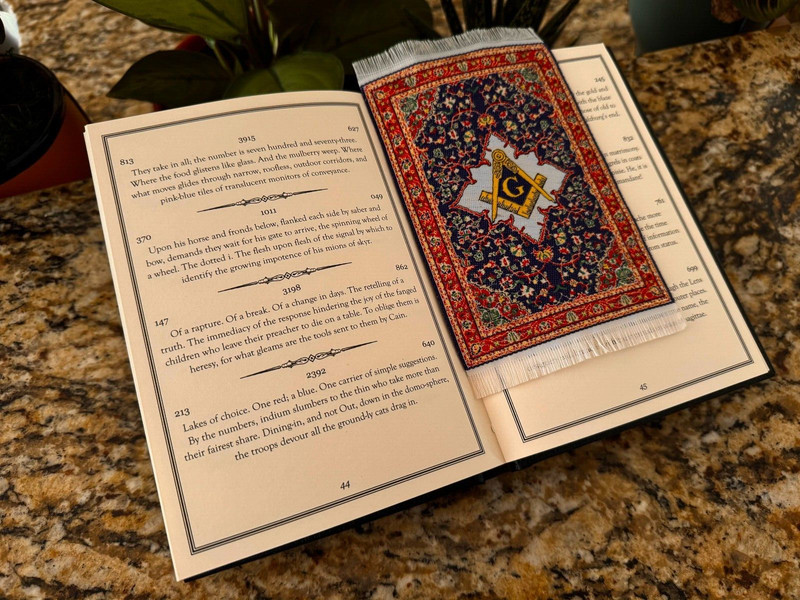 3915
813 627
They take in all; the number is seven hundred and seventy-three.
Where the food glistens like glass. And the mulberry weep. Where
what moves glides through narrow, roofless, outdoor corridors, and
pink-blue tiles of translucent monitors of conveyance.
1011
370 049
Upon his horse and fronds below, flanked each side by saber and
bow, demands they wait for his gate to arrive, the spinning wheel of
a wheel. The dotted i. The flesh upon flesh of the signal by which to
identify the growing impotence of his mions of skyr.
3198
147 862
Of a rapture. Of a break. Of a change in days. The retelling of a
truth. The immediacy of the response hindering the joy of the fanged
children who leave their preacher to die on a table. To oblige them is
heresy, for what gleams are the tools sent to them by Cain.
2392
213 640
Lakes of choice. One red; a blue. One carrier of simple suggestions.
By the numbers, indium slumbers to the thin who take more than
their fairest share. Dining-in, and not Out, down in the domo-sphere,
the troops devour all the ground-ly cats drag in.
44
G
545
the gold and
with the blaze
of old to
end-
832
matrimony.
in coats
He, it is
761
the more
the time.
information
status.
699
through the Lens
outer places.
name, the
sagittae.
45